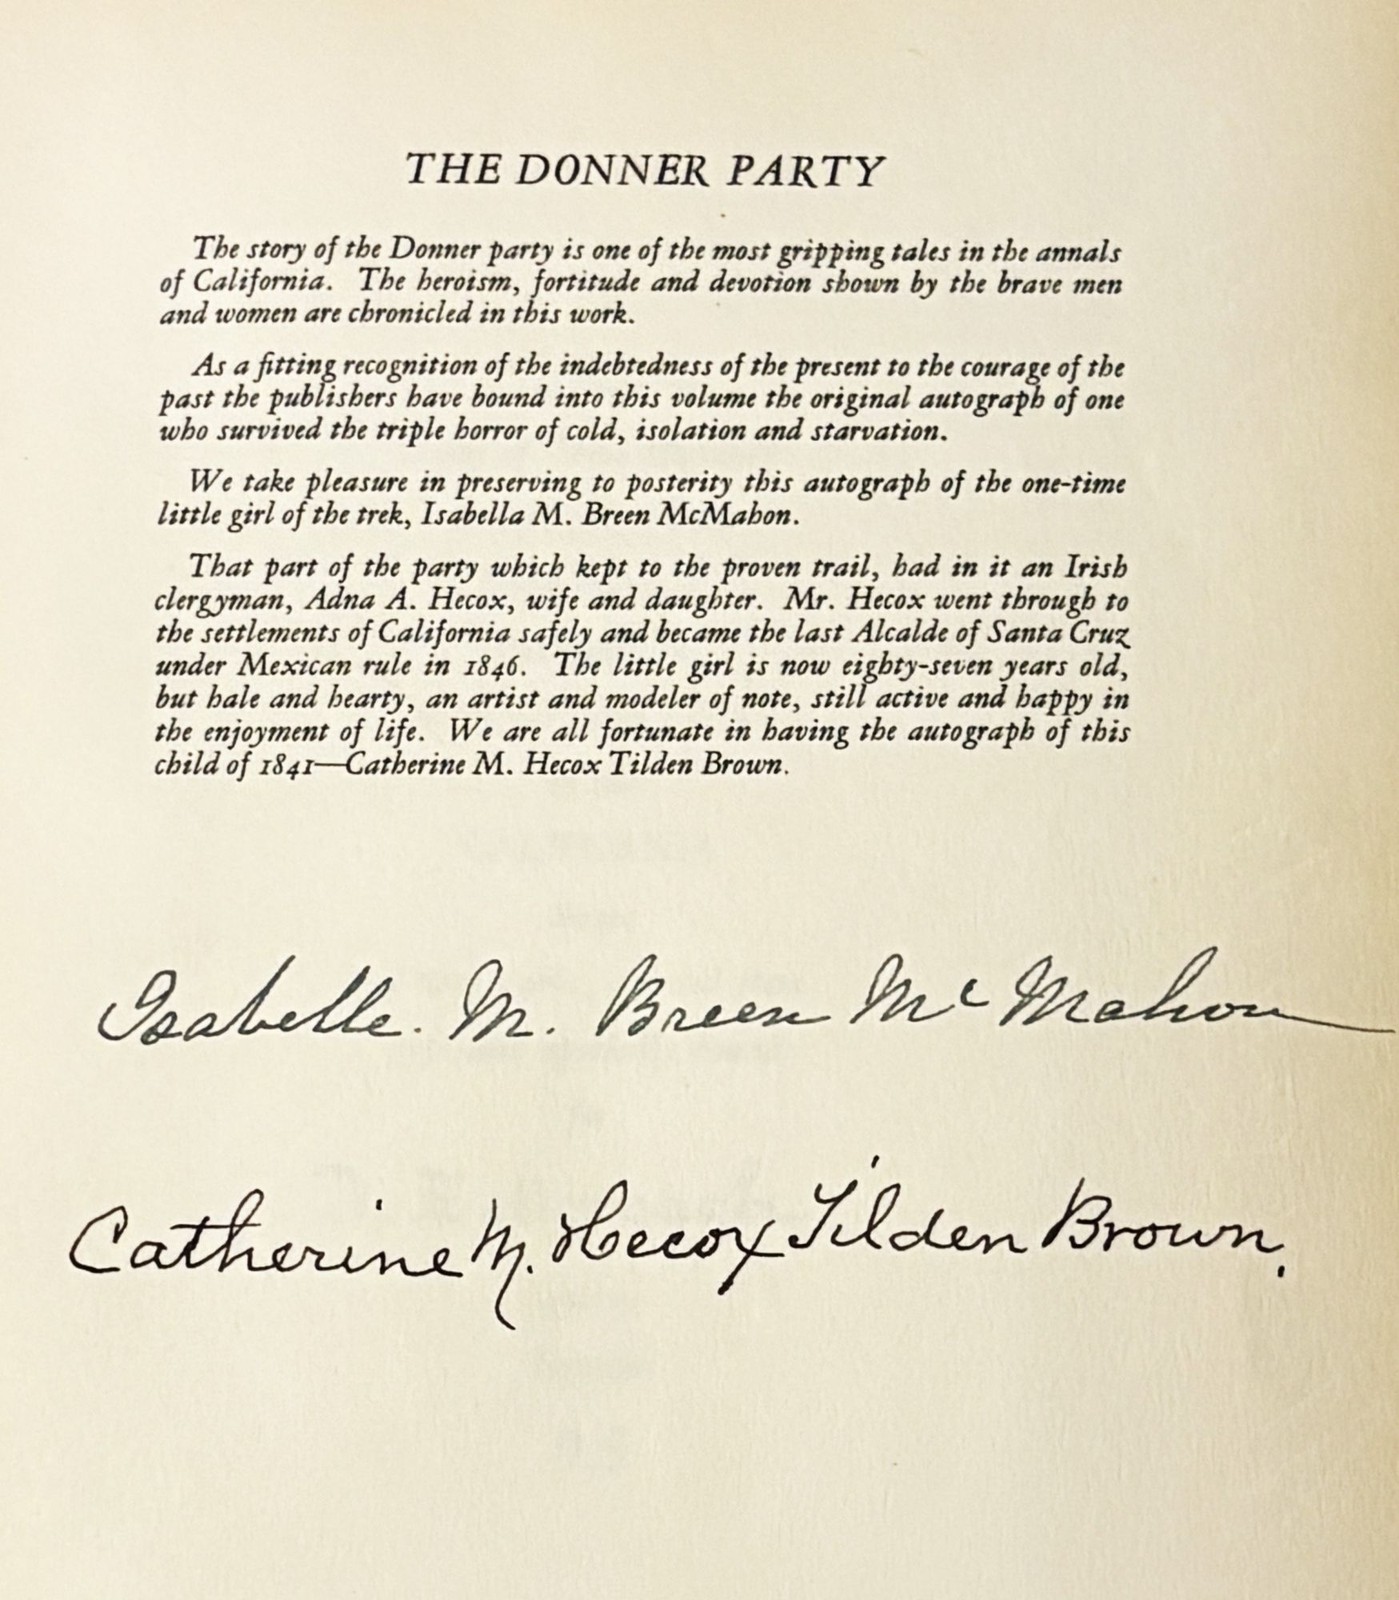 THE DONNER PARTY
The story of the Donner party is one of the most gripping tales in the annals
of California. The heroism, fortitude and devotion shown by the brave men
and women are chronicled in this work.
As a fitting recognition of the indebtedness of the present to the courage of the
past the publishers have bound into this volume the original autograph of one
who survived the triple horror of cold, isolation and starvation.
We take pleasure in preserving to posterity this autograph of the one-time
little girl of the trek, Isabella M. Breen McMahon.
That part of the party which kept to the proven trail, had in it an Irish
clergyman, Adna A. Hecox, wife and daughter. Mr. Hecox went through to
the settlements of California safely and became the last Alcalde of Santa Cruz
under Mexican rule in 1846. The little girl is now eighty-seven years old,
but hale and hearty, an artist and modeler of note, still active and happy in
the enjoyment of life. We are all fortunate in having the autograph of this
child of 1841—Catherine M. Hecox Tilden Brown.
Isabelle. M. Breen McMahon
Catherine M. Hecox Tilden Brown.